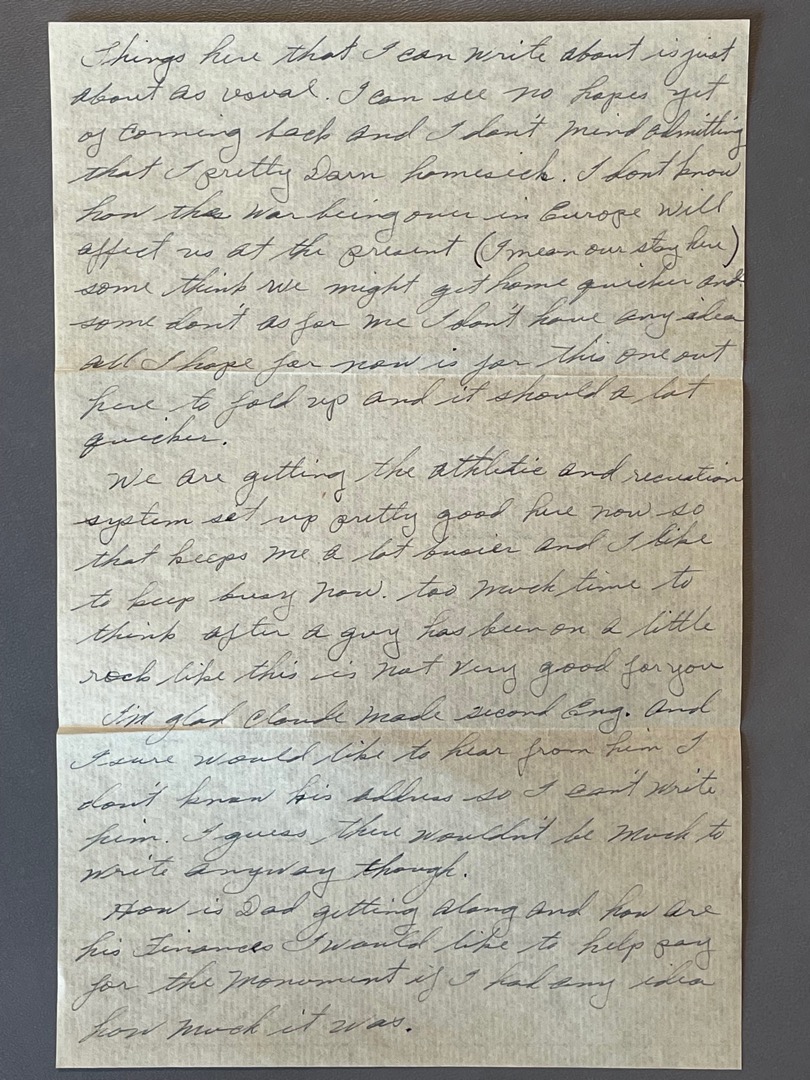 Things here that I can write about is just
about as usual. I can see no hopes yet
of coming back and I don't mind admitting
that I pretty Darn homesick. I dont know
how the war being over in Europe will
affect us at the present (I mean our stay here)
some think we might get home quicker and
some don't as for me I don't have any idea
all I hope for now is for this one out
here to fold up and it should a lot
quicker.
We are getting the athletic and recreation
system set up pretty good here now so
that keeps me a lot busier and I like
to keep busy now. too much time to
think after a guy has been on a little
rock like this is not very good for you
I'm glad Claude made second Eng. And
I sure would like to hear from him I
don't know his address so I can't write
him. I guess there wouldn't be much to
write anyway though.
How is Dad getting along and how are
his Finances I would like to help pay
for the Monument if I had any idea
how much it was.